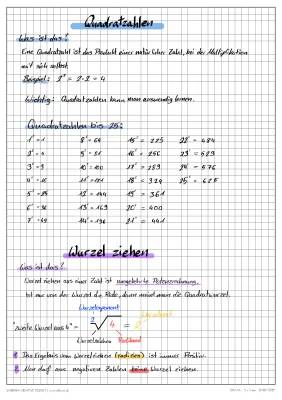 Quadratzahlen
Was ist das?
Eine Quadratzahl ist das Produkt einer natürlicher Zahl, bei der Multiplikation
mit sich selbst.
Beispiel: 2² = 2·2 = 4
Wichtig: Quadratzahlen kann man auswendig lernen.
Quadratzahlen bis 25:
1² = 1 8² = 64 15² = 225 22² = 484
2² = 4 9² = 81 16² = 256 23² = 529
3² = 9 10² = 100 17² = 289 24² = 576
4² = 16 11² = 121 18² = 324 25² = 625
5² = 25 12² = 144 19² = 361
6² = 36 13² = 169 20² = 400
7² = 49 14² = 196 21² = 441
Wurzel ziehen
Was ist das?
Wurzel ziehen aus einer Zahl ist umgekehrte Potenzrechnung.
Ist nur von der Wurzel die Rede, dann meint man die Quadratwurzel.
Wurzelexponent
"zweite Wurzel aus 4" = ²√4 = 2
Wurzelzeichen Radikand
1. Das Ergebnis vom Wurzelziehen (radizieren) ist immer Positiv.
2. Man darf aus negativen Zahlen keine Wurzel ziehen.